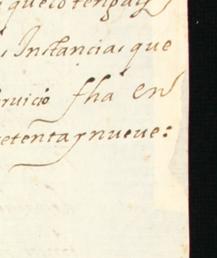 que co tengais
Instancia, que
ruicio fha en
etenta y nueue: